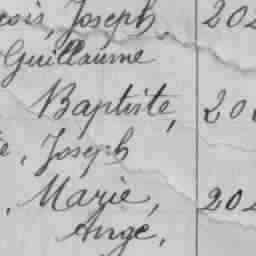 Joseph
Guillaume
Baptiste,
, Joseph
, Marie,
Ange,